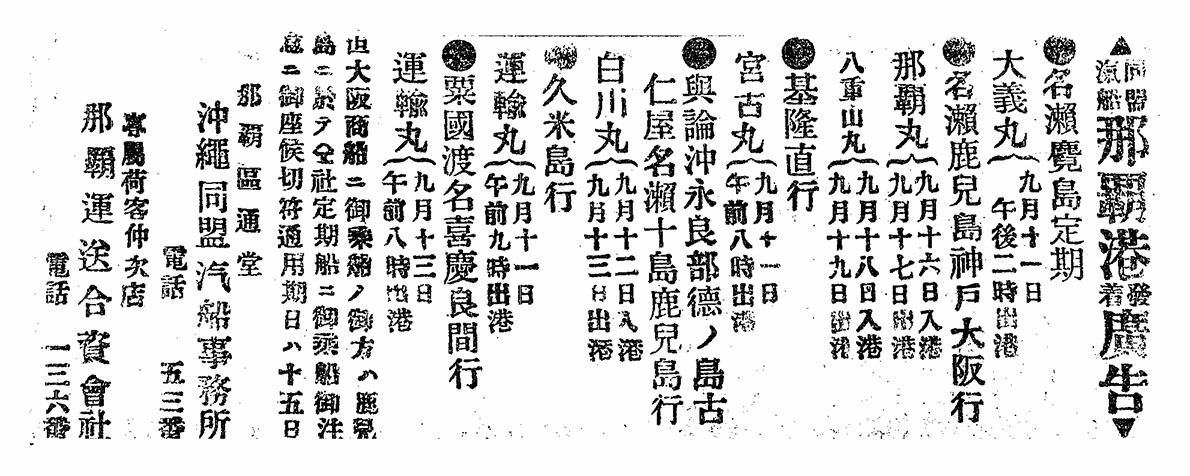 ▲同盟汽船那覇港發着廣告▼
●名瀬覽島定期
大義丸
九月十一日
午後二時出港
●名瀬鹿兒島神戸大阪行
那覇丸
九月十六日入港
九月十七日出港
八重山丸
九月十八日入港
九月十九日出港
●基隆直行
宮古丸
九月十一日
午前八時出港
●與論沖永良部德ノ島古
仁屋名瀬十島鹿兒島行
白川丸
九月十二日入港
九月十三日出港
●久米島行
運輸丸
九月十一日
午前九時出港
●粟國渡名喜慶良間行
運輸丸
九月十三日
午前八時出港
但大阪商船ニ御乘船ノ御方ハ鹿兒
島ニ於テ全社定期船ニ御乘船御注
意ニ御座候切符通用期日ハ十五日
那覇區通堂
沖繩同盟汽船事務所
電話 五三番
專屬荷客仲次店
那覇運送合資會社
電話 一三六番